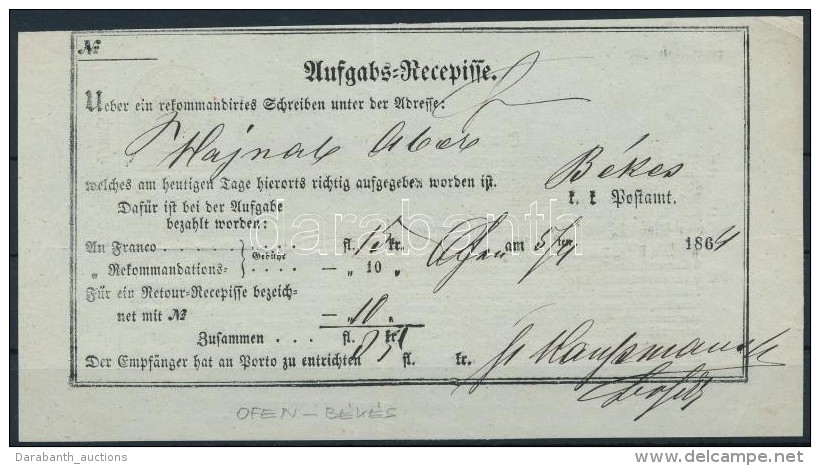 №
Aufgabs-Recepisse.
Ueber ein rekommandirtes Schreiben unter der Adresse:
Hajnal Aber
Békes
welches am heutigen Tage hierorts richtig aufgegeben worden ist.
k. k Postamt.
Dafür ist bei der Aufgabe
bezahlt worden:
An Franco . . . . . Gebühr . . . . fl. 15 kr.
Ofen am 5/4 ten 1864
„ Rekommandations- . . . . — „ 10 „
Für ein Retour-Recepisse bezeich-
net mit № — „ 10 „
Zusammen . . . fl. 35 kr
Der Empfänger hat an Porto zu entrichten fl. kr.
OFEN - BÉKÉS
darabanth
Darabanth_auctions
http://www.delcampe.net